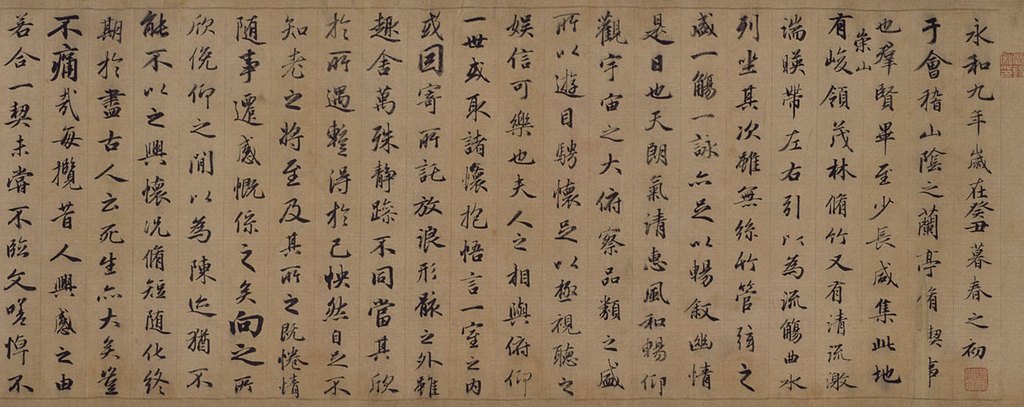 永和九年歲在癸丑暮春之初
于會稽山陰之蘭亭脩稧事
也羣賢畢至少長咸集此地
崇山
有峻領茂林脩竹又有清流激
湍暎帶左右引以為流觴曲水
列坐其次雖無絲竹管弦之
盛一觴一詠亦足以暢敘幽情
是日也天朗氣清惠風和暢仰
觀宇宙之大俯察品類之盛
所以遊目騁懷足以極視聽之
娛信可樂也夫人之相與俯仰
一世或取諸懷抱悟言一室之內
或因寄所託放浪形骸之外雖
趣舍萬殊靜躁不同當其欣
於所遇蹔得於己怏然自足不
知老之將至及其所之既惓情
隨事遷感慨係之矣向之所
欣俛仰之閒以為陳迹猶不
能不以之興懷況脩短隨化終
期於盡古人云死生亦大矣豈
不痛哉每攬昔人興感之由
若合一契未嘗不臨文嗟悼不